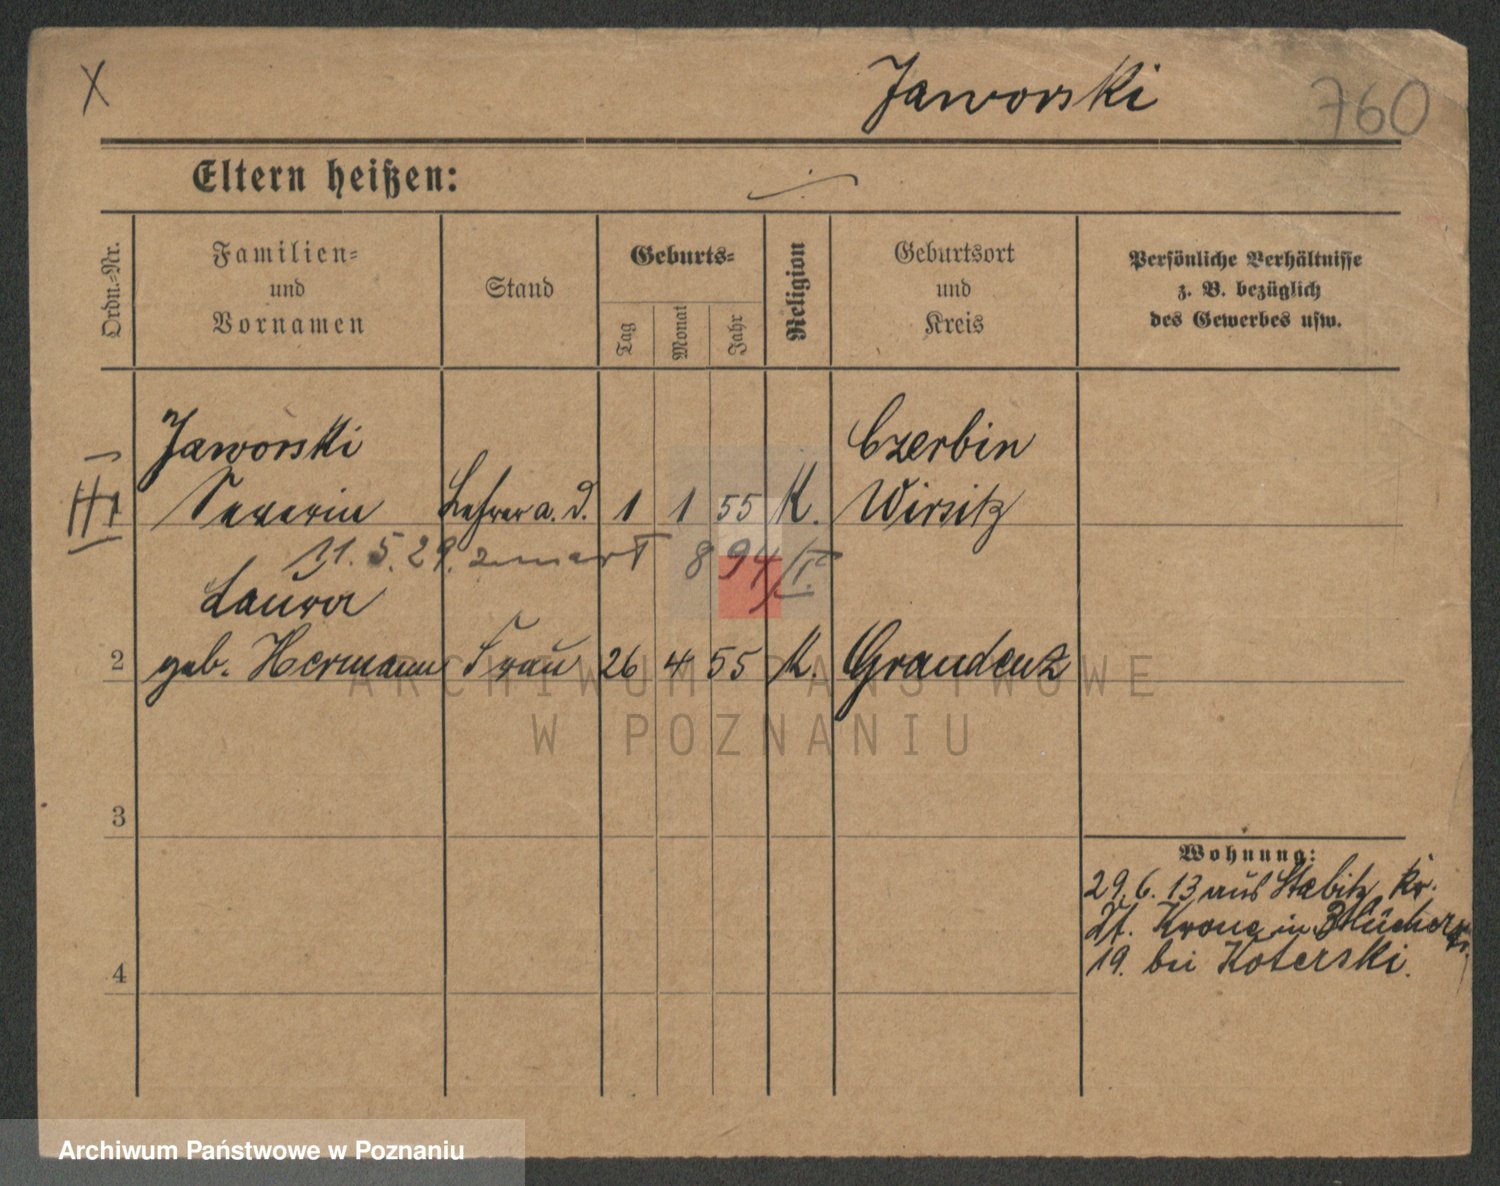 X
Jaworski
760
Eltern heißen:
Ordn.-Nr.
Familien-
und
Vornamen
Stand
Geburts-
Tag
Monat
Jahr
Religion
Geburtsort
und
Kreis
Persönliche Verhältnisse
z. B. bezüglich
des Gewerbes usw.
Jaworski Czerbin
Severin Lehrer a. D. 1 1 55 K. Wirsitz
11. 5. 29. zmarł 894/I.
Laura
2 geb. Hermann Frau 26 4 55 K. Graudenz
3
Wohnung:
29. 6. 13 aus Stabitz Kr.
Dt. Krone in Blücherstr.
19. bei Koterski.
4
ARCHIWUM PAŃSTWOWE
W POZNANIU
Archiwum Państwowe w Poznaniu